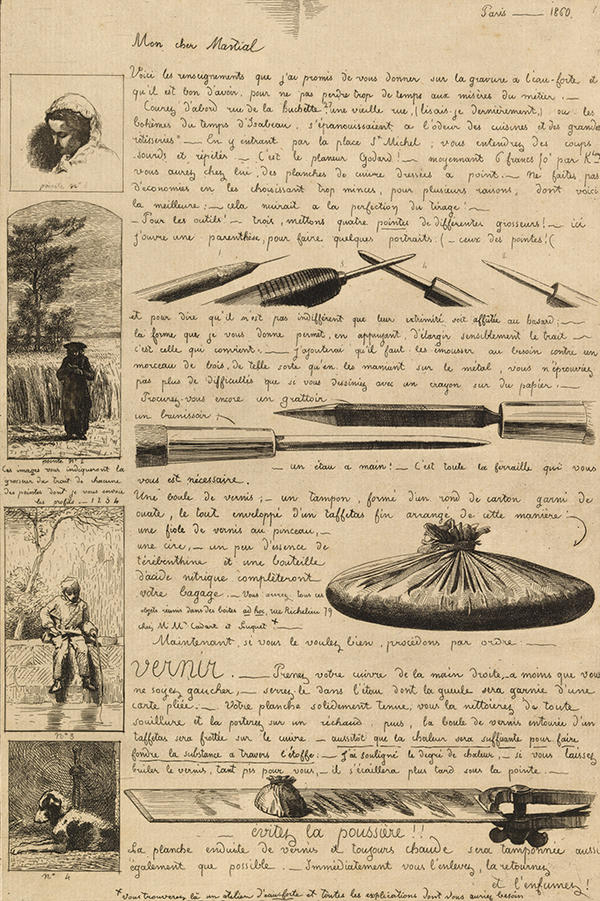 Paris — 1860.
Mon cher Martial
Voici les renseignements que j'ai promis de vous donner sur la gravure a l'eau-forte et
qu'il est bon d'avoir, pour ne pas perdre trop de temps aux misères du métier. —
Courez d'abord rue de la huchette "une vieille rue, (lisais-je dernièrement,) ou les
bohèmes du temps d'Isabeau, s'épanouissaient a l'odeur des cuisines et des grandes
rôtisseries" — En y entrant, par la place St Michel; vous entendrez des coups
sourds et répétés — C'est le planeur Godard! — moyennant 6 francs 50 par K.
vous aurez chez lui, des planches de cuivre dressées a point. — Ne faites pas
d'économies en les choisissant trop minces, pour plusieurs raisons, dont voici
la meilleure: — cela nuirait a la perfection du tirage! —
— Pour les outils! — trois, mettons quatre pointes de différentes grosseurs! — ici
j'ouvre une parenthèse, pour faire quelques portraits: (— ceux des pointes! (
et pour dire qu'il n'est pas indifférent que leur extrémité soit affutée au hasard: —
la forme que je vous donne permet, en appuyant, d'élargir sensiblement le trait —
c'est celle qui convient. — J'ajouterai qu'il faut les émousser au besoin contre un
morceau de bois, de telle sorte qu'en les maniant sur le metal, vous n'éprouviez
pas plus de difficultés que si vous dessiniez avec un crayon sur du papier. —
Procurez-vous encore un grattoir
un brunissoir;
— un étau a main! — C'est toute la ferraille qui vous
vous est nécessaire.
Une boule de vernis; — un tampon, formé d'un rond de carton garni de
ouate, le tout enveloppé d'un taffetas fin arrangé de cette manière:
une fiole de vernis au pinceau, —
une cire, — un peu d'essence de
térébenthine et une bouteille
d'acide nitrique complèteront
votre bagage. — Vous aurez tous ces
objets réunis dans des boites ad hoc, rue Richelieu 79
chez M Mrs Cadart et Luquet + —
Maintenant, si vous le voulez bien, procédons par ordre: —
Vernir. — Prenez votre cuivre de la main droite, a moins que vous
ne soyez gaucher, — serrez le dans l'étau dont la gueule sera garnie d'une
carte pliée. — Votre planche solidement tenue, vous la nettoierez de toute
souillure et la porterez sur un réchaud, puis, la boule de vernis entourée d'un
taffetas sera frottée sur le cuivre — aussitôt que la chaleur sera suffisante pour faire
fondre la substance a travers l'étoffe: — J'ai souligné le degré de chaleur, — si vous laissez
bruler le vernis, tant pis pour vous, — il s'écaillera plus tard sous la pointe —
— evitez la poussière!!
La planche enduite de vernis et toujours chaude sera tamponnée aussi
également que possible — Immédiatement vous l'enlevez, la retournez
et l'enfumez!
+ vous trouverez là un atelier d'eau-forte et toutes les explications dont vous auriez besoin
pointe No 1
pointe No 2
Ces images vous indiqueront la
grosseur du trait de chacune
des pointes dont je vous envoie
les profils — 1 2 3 4
No 3
No 4